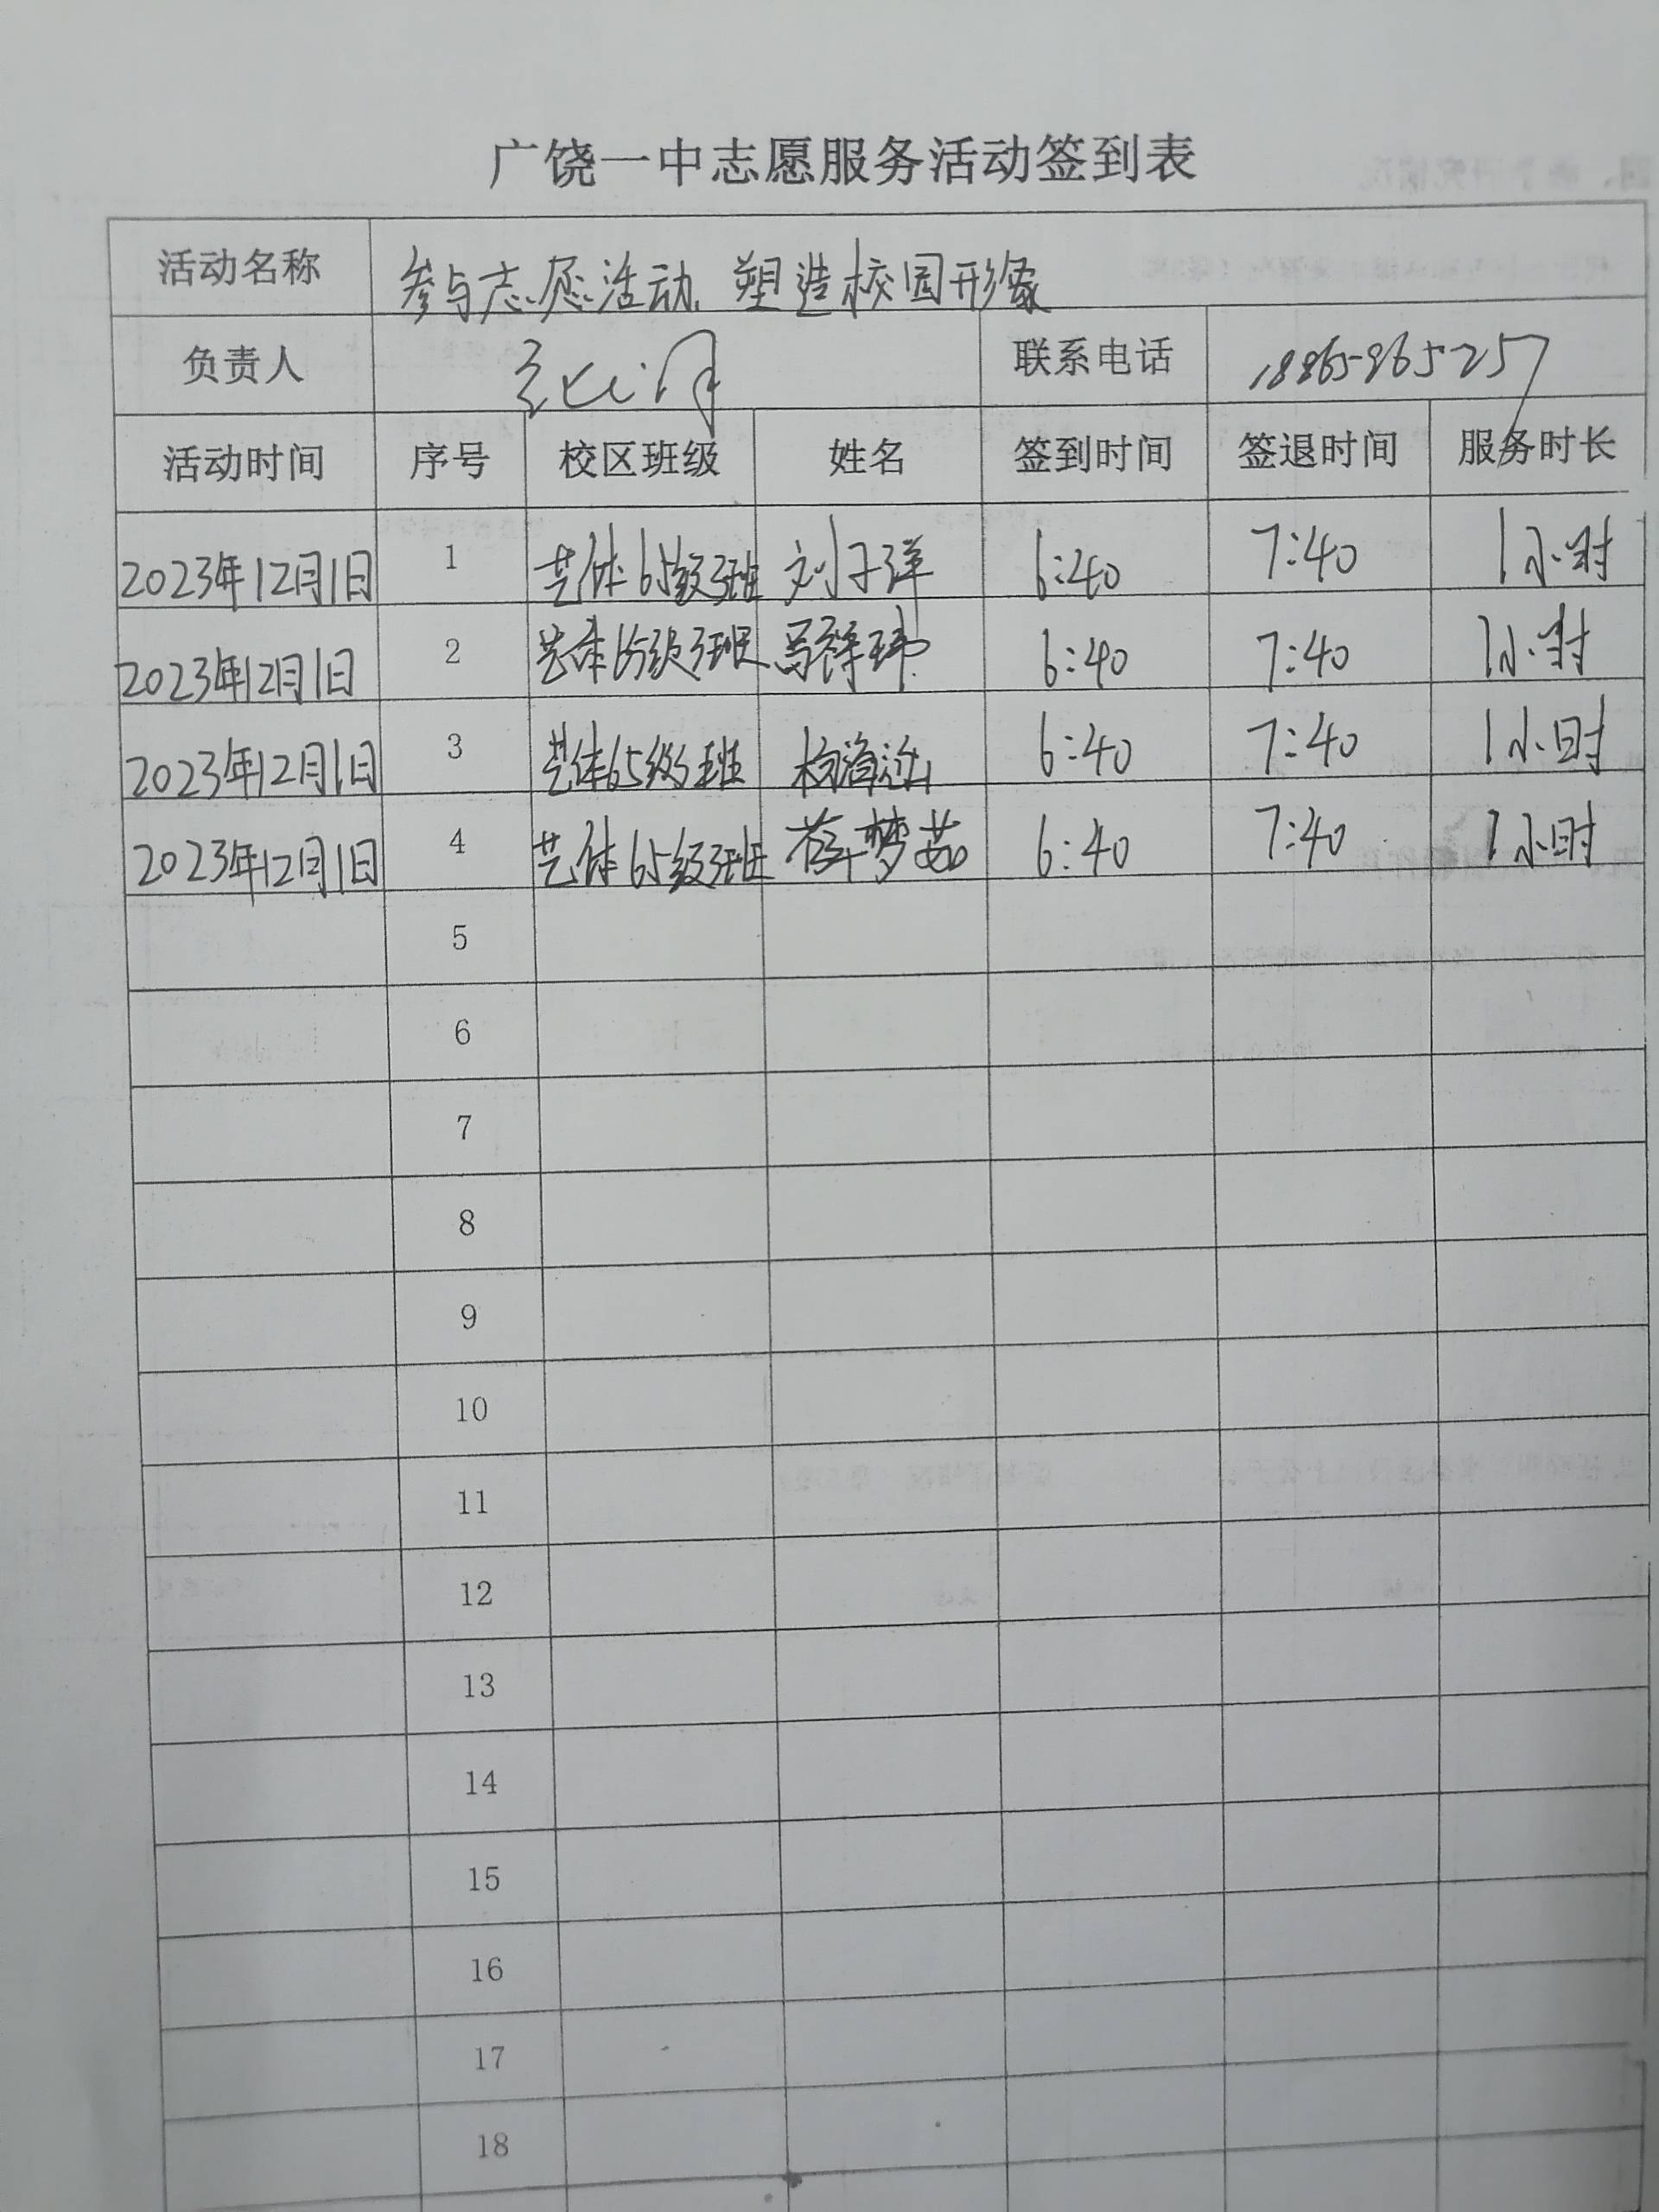 广饶一中志愿服务活动签到表
活动名称 参与志愿活动, 塑造校园形象
负责人 联系电话
活动时间 序号 校区班级 姓名 签到时间 签退时间 服务时长
2023年12月1日 1 艺体65级3班 刘子洋 6:40 7:40 1小时
2023年12月1日 2 艺体65级3班 6:40 7:40 1小时
2023年12月1日 3 艺体65级3班 6:40 7:40 1小时
2023年12月1日 4 艺体65级3班 薛梦茹 6:40 7:40 1小时
5
6
7
8
9
10
11
12
13
14
15
16
17
18